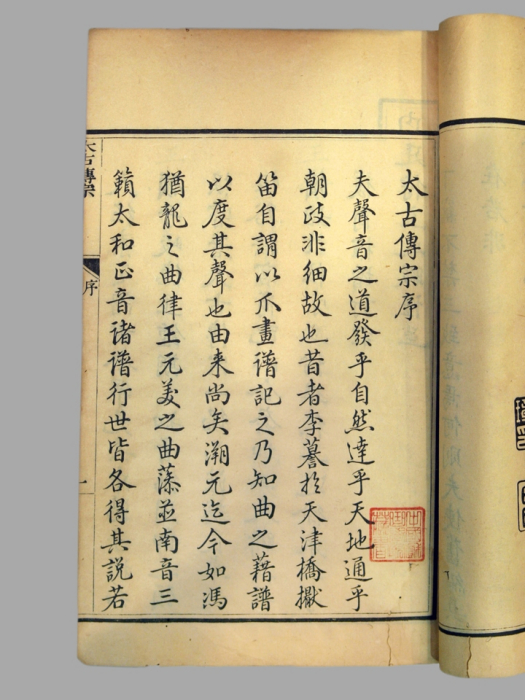 太古傳宗序
夫聲音之道發乎自然達乎天地通乎
朝政非細故也昔者李謩於天津橋擫
笛自謂以爪畫譜記之乃知曲之藉譜
以度其聲也由来尚矣溯元迄今如馮
猶龍之曲律王元美之曲藻並南音三
籟太和正音諸譜行世皆各得其說若
太古傳宗
序
一